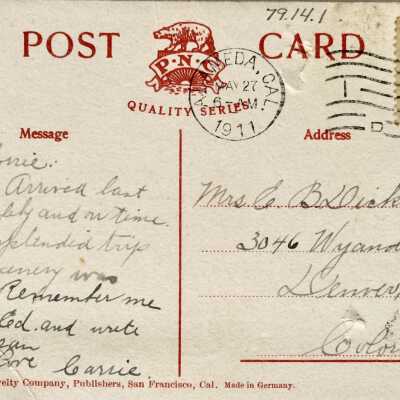 79.14.1
POST CARD
P·N·C
QUALITY SERIES
ALAMEDA, CAL.
MAY 27
6 - AM
1911
D
Message
Address
Arrived last
and on time.
splendid trip
was
Remember me
Ed. and write
Love Carrie
Mrs C B Dick
3046 Wyand
Denver
Color
elty Company, Publishers, San Francisco, Cal. Made in Germany.